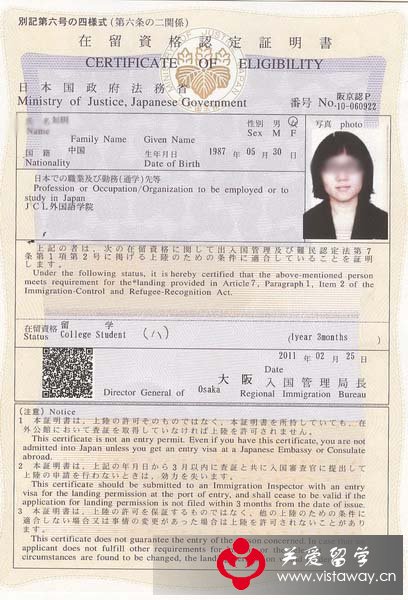 別記第六号の四様式(第六条の二関係)
在留資格認定証明書
CERTIFICATE OF ELIGIBILITY
日本国政府法務省
Ministry of Justice, Japanese Government
番号 No. 阪京認P 10-060922
Name
Family Name Given Name
性別 男 女
Sex M F
写真 photo
国籍 中国 生年月日 1987 05 月 30 日
Nationality Date of Birth
日本での職業及び勤務(通学)先等
Profession or Occupation/Organization to be employed or to
study in Japan
JCL外国語学院
上記の者は、次の在留資格に関して出入国管理及び難民認定法第7
条第1項第2号に掲げる上陸のための条件に適合していることを証明
します。
Under the following status, it is hereby certified that the above-mentioned person
meets requirement for the landing provided in Article 7, Paragraph 1, Item 2 of the
Immigration-Control and Refugee-Recognition Act.
在留資格 留 学
Status College Student (ハ) (1year 3months )
2011 02 月 25 日
Date
大阪 入国管理局長
Director General of Osaka Regional Immigration Bureau
(注意) Notice
1 本証明書は、上陸の許可そのものではなく、本証明書を所持していても、在
外公館において査証を取得していなければ上陸を許可されません。
This certificate is not an entry permit. Even if you have this certificate, you are not
admitted into Japan unless you get an entry visa at a Japanese Embassy or Consulate
abroad.
2 本証明書は、上記の年月日から3月以内に査証と共に入国審査官に提出して
上陸の申請を行わないときは、効力を失います。
This certificate should be submitted to an Immigration Inspector with an entry
visa for the landing permission at the port of entry, and shall cease to be valid if the
application for landing permission is not filed within 3 months from the date of issue.
3 本証明書は、上陸の許可を保証するものではなく、他の上陸のための条件に
適合しない場合又は事情の変更があった場合は上陸を許可されないことがあり
ます。
This certificate does not guarantee the entry of the person concerned. In case that an
applicant does not fulfill other requirements for
circumstances are found to be changed, the landing
关爱留学
www.vistaway.cn